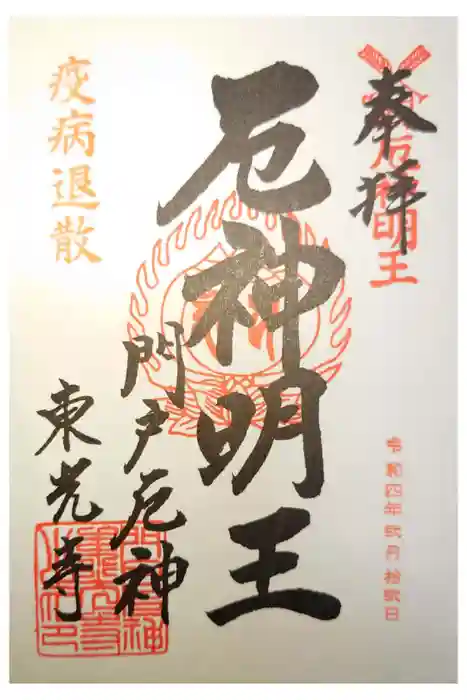 奉拝
厄神明王
令和四年弐月拾弐日
厄神明王
門戸厄神
東光寺
疫病退散